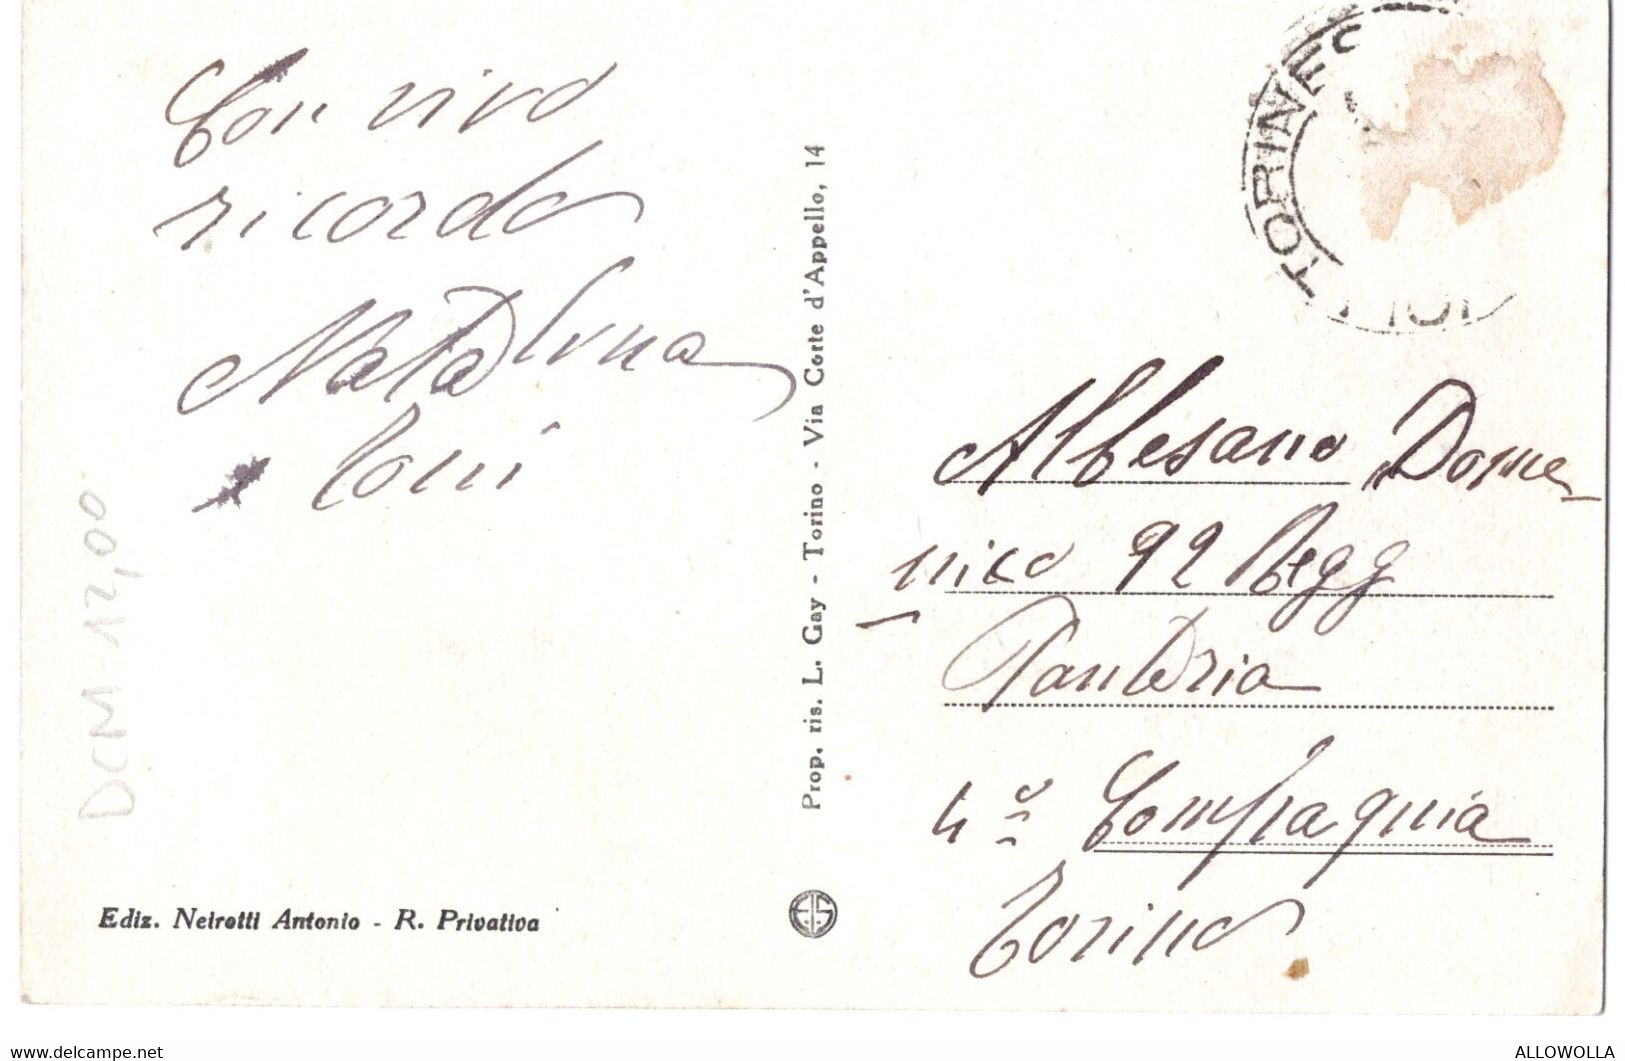 Con vivo
ricordo
Natalina
Toni
DCM 12,00
Ediz. Neirotti Antonio - R. Privativa
Prop. ris. L. Gay - Torino - Via Corte d'Appello, 14
TORINES
Albesano Dome
nico 92 Regg
Fanteria
4ª Compagnia
Torino
www.delcampe.net
ALLOWOLLA